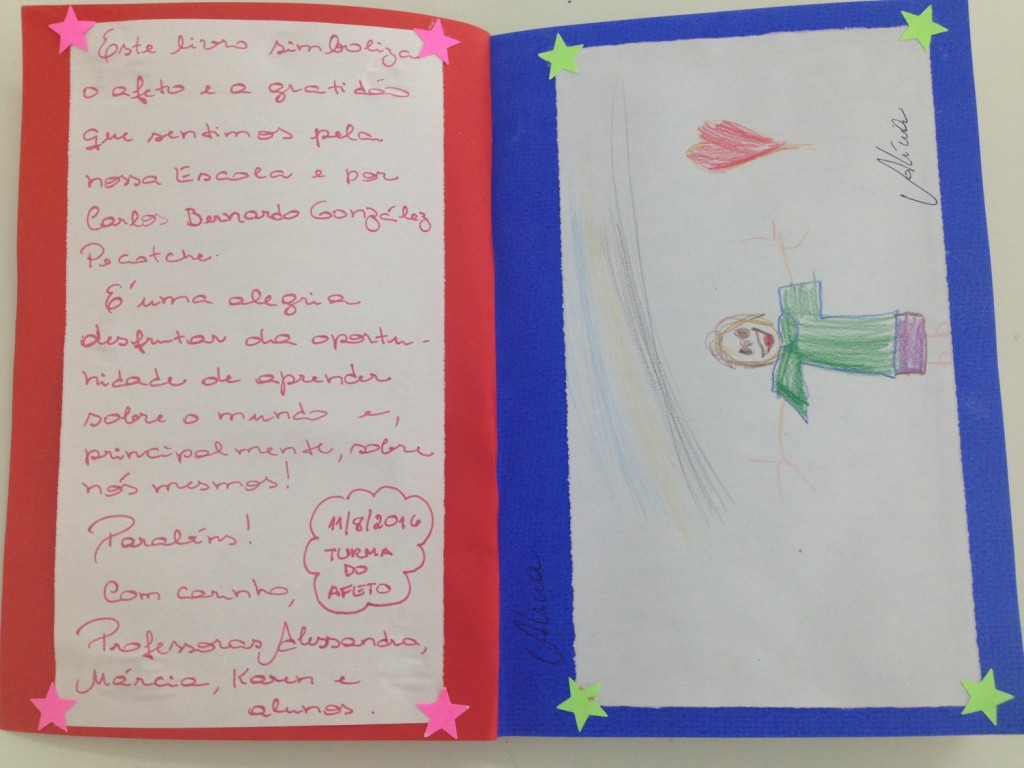 Este livro simboliza
o afeto e a gratidão
que sentimos pela
nossa Escola e por
Carlos Bernardo González
Pecotche.
É uma alegria
desfrutar da oportu-
nidade de aprender
sobre o mundo e,
principalmente, sobre
nós mesmos!
Parabéns!
11/8/2016
TURMA
DO
AFETO
Com carinho,
Professoras Alessandra,
Márcia, Karen e
alunos.